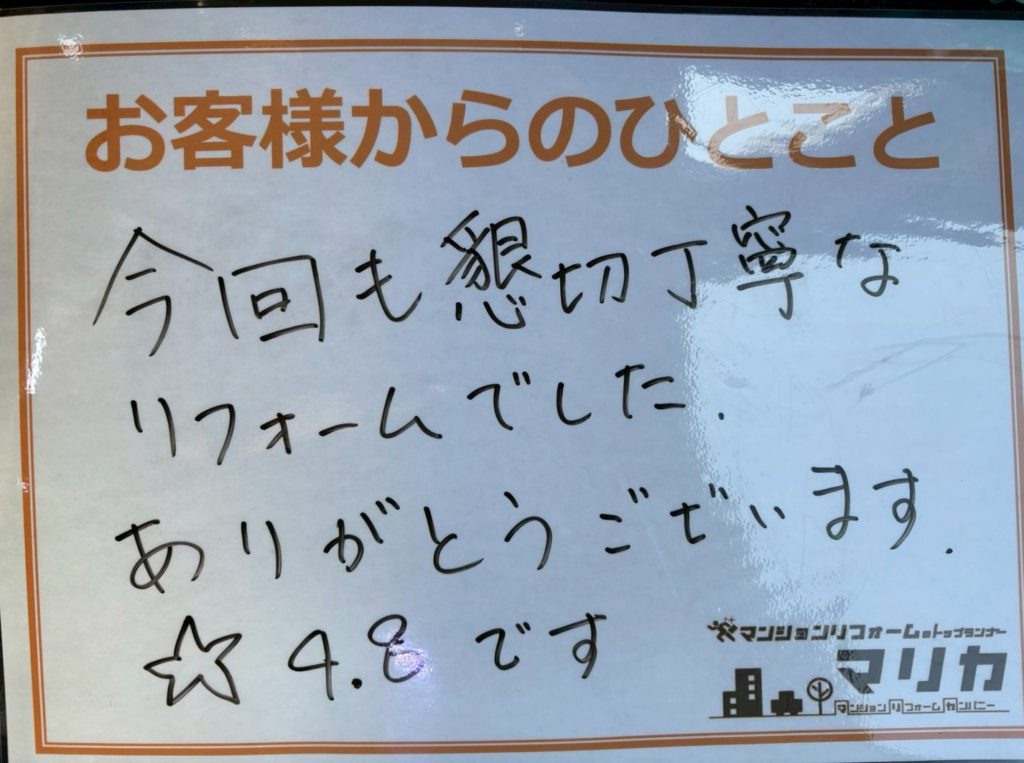 お客様からのひとこと
今回も懇切丁寧な
リフォームでした.
ありがとうございます.
☆ 4.8 です
マンションリフォームのトップランナー
マリカ
マンションリフォームカンパニー